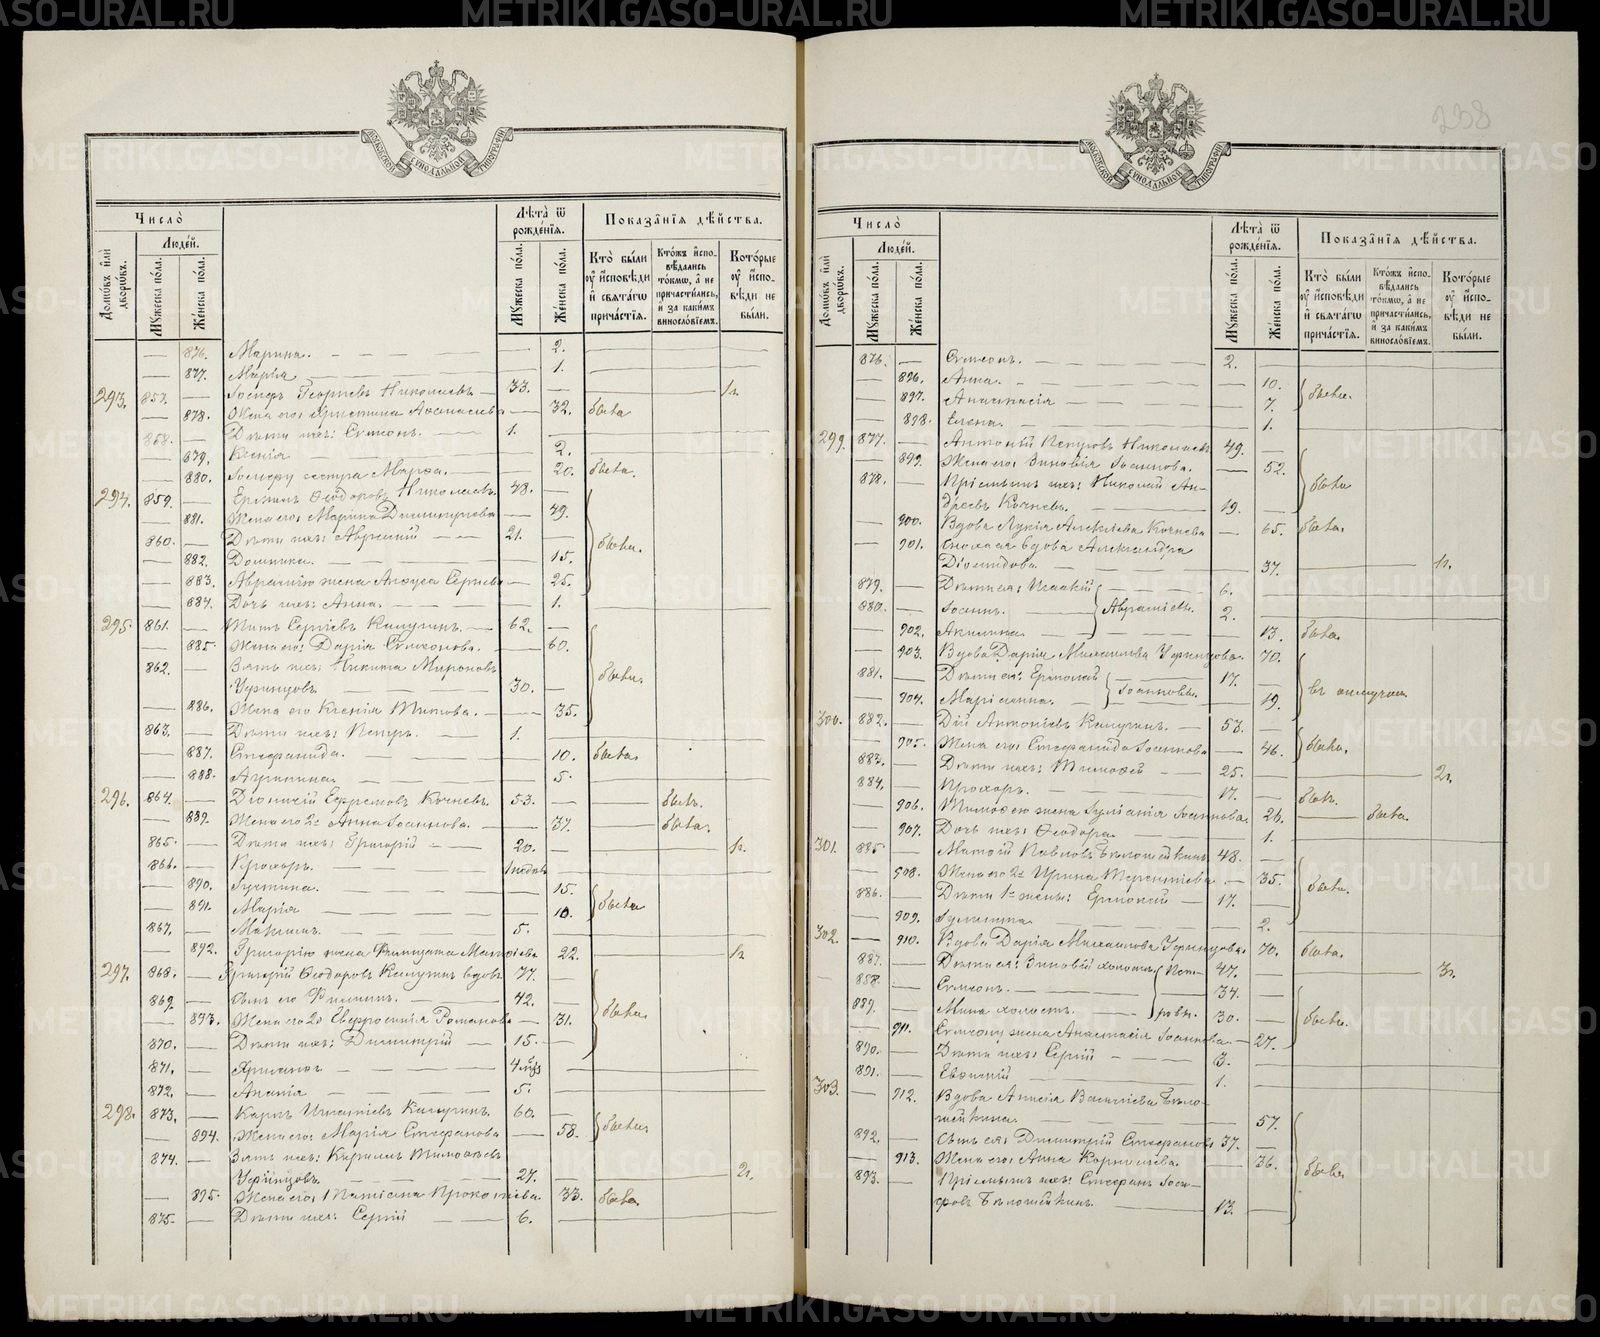 METRIKI.GASO-URAL.RU
238
МОСКОВСКОЙ СѴНОДАЛЬНОЙ ТИПОГРАФІИ
Число̀
Людей.
Домѡвъ или дворѡвъ.
Мꙋжеска пола.
Женска пола.
Лѣта ѿ рожденїѧ.
Мꙋжеска пола.
Женска пола.
Показанїѧ дѣйства.
Кто были ᲂу҆ исповѣди и свѧтагѡ причастїѧ.
Ктожъ исповѣдались токмѡ, а не причастились, и за какимъ винословїемъ.
Которые ᲂу҆ исповѣди не были.
876. Марина. 2.
877. Марія 1.
293. 857. Іосифъ Георгіевъ Николаевъ 33. 1г.
878. Жена его: Христина Аѳанасіева 32. была
858. Дѣти ихъ: Симеонъ. 1.
879. Ксенія 2.
880. Іосифу сестра Марѳа. 20. была.
294. 859. Ѳеодоровъ Николаевъ 48.
881. Жена его: Марина Димитріева 49.
860. Дѣти ихъ: Авраамій 21. были.
882. Домника. 15.
883. Авраамію жена Сергіева 25.
884. Дочь ихъ: Анна. 1.
295. 861. Титъ Сергіевъ Калугинъ. 62.
885. Жена его: Дарія Симеонова. 60.
862. Зять ихъ: Никита Мироновъ были.
Уфинцовъ 30.
886. Жена его Ксенія Титова. 35.
863. Дѣти ихъ: Петръ. 1.
887. Стефанида. 10. была.
888. Агрипина. 5.
296. 864. Діонисій Ефремовъ Кочневъ. 53. былъ.
889. Жена его 2я Анна Іоаннова. 37. была.
865. Дѣти ихъ: Григорій 20. 1г.
866. Прохоръ.
890. Іустина. 15.
891. Марія 10. были
867. Максимъ. 5.
892. Григорію жена 22. 1г.
297. 868. Григорій Ѳеодоровъ Калугинъ вдовъ 77.
869. Сынъ его Филиппъ. 42.
893. Жена его 2я Евфросинія Романова 31. были.
870. Дѣти ихъ: Димитрій 15.
871. 4 мѣс
872. Ананія 5.
298. 873. Карпъ Игнатіевъ Калугинъ. 60.
894. Жена его: Марія Стефанова 58. были.
874. Зять ихъ: Кириллъ Тимоѳеевъ
Уфинцовъ. 27. 2г.
895. Жена его: Прокопіева. 33. была.
875. Дѣти ихъ: Сергій 6.
Число̀
Людей.
Домѡвъ или дворѡвъ.
Мꙋжеска пола.
Женска пола.
Лѣта ѿ рожденїѧ.
Мꙋжеска пола.
Женска пола.
Показанїѧ дѣйства.
Кто были ᲂу҆ исповѣди и свѧтагѡ причастїѧ.
Ктожъ исповѣдались токмѡ, а не причастились, и за какимъ винословїемъ.
Которые ᲂу҆ исповѣди не были.
876. Симеонъ. 2.
896. Анна. 10.
897. Анастасія 7. были.
898. Елена. 1.
299. 877. Антоній Петровъ Николаевъ 49.
899. Жена его: Зиновія Іоаннова. 52.
878. Пріемышъ ихъ: Николай Ан- были
дреевъ Кочневъ. 19.
900. Вдова Лукія Алексіева Кочнева 65. была.
901. Сноха ея вдова Александра
Діомидова. 37. 1г.
879. Дѣти ея: Исаакій 6.
880. Іоаннъ. Авраамовы. 2.
902. Акилина. 13. была.
903. Вдова Дарія Михаилова Уфинцова. 70.
881. Дѣти ея: Ермолай 17.
904. Маріамна. Іоанновы. 19. въ отлучкѣ
300. 882. Дій Антоніевъ Калугинъ. 53.
905. Жена его: Стефанида Іоаннова 46. были.
883. Дѣти ихъ: Тимоѳей 25. 2г.
884. Прохоръ. 17. былъ.
906. Тимоѳею жена Іуліанія Іоаннова. 26. была.
907. Дочь ихъ: Ѳеодора. 1.
301. 885. Матѳій Павловъ Бѣлошейкинъ 48.
908. Жена его 2я Ирина Терентіева 35. были.
886. Дѣти 1й жены: Ермолай 17.
909. Іулитта 2.
302. 910. Вдова Дарія Михаилова Уфинцова. 70. была.
887. Дѣти ея: Зиновій холостъ. Пет- 47. 3г.
888. Симеонъ. 34.
889. Мина холостъ. ровы. 30. были.
911. Симеону жена Анастасія Іоаннова. 27.
890. Дѣти ихъ: Сергій 3.
891. Евѳимій 1.
303. 912. Вдова Анисія Василіева Бѣло-
шейкина. 57.
892. Сынъ ея: Димитрій Стефановъ 37.
913. Жена его: Анна Корнилева. 36. были.
893. Пріемышъ ихъ: Стефанъ Іоси-
фовъ Бѣлошейкинъ. 13.